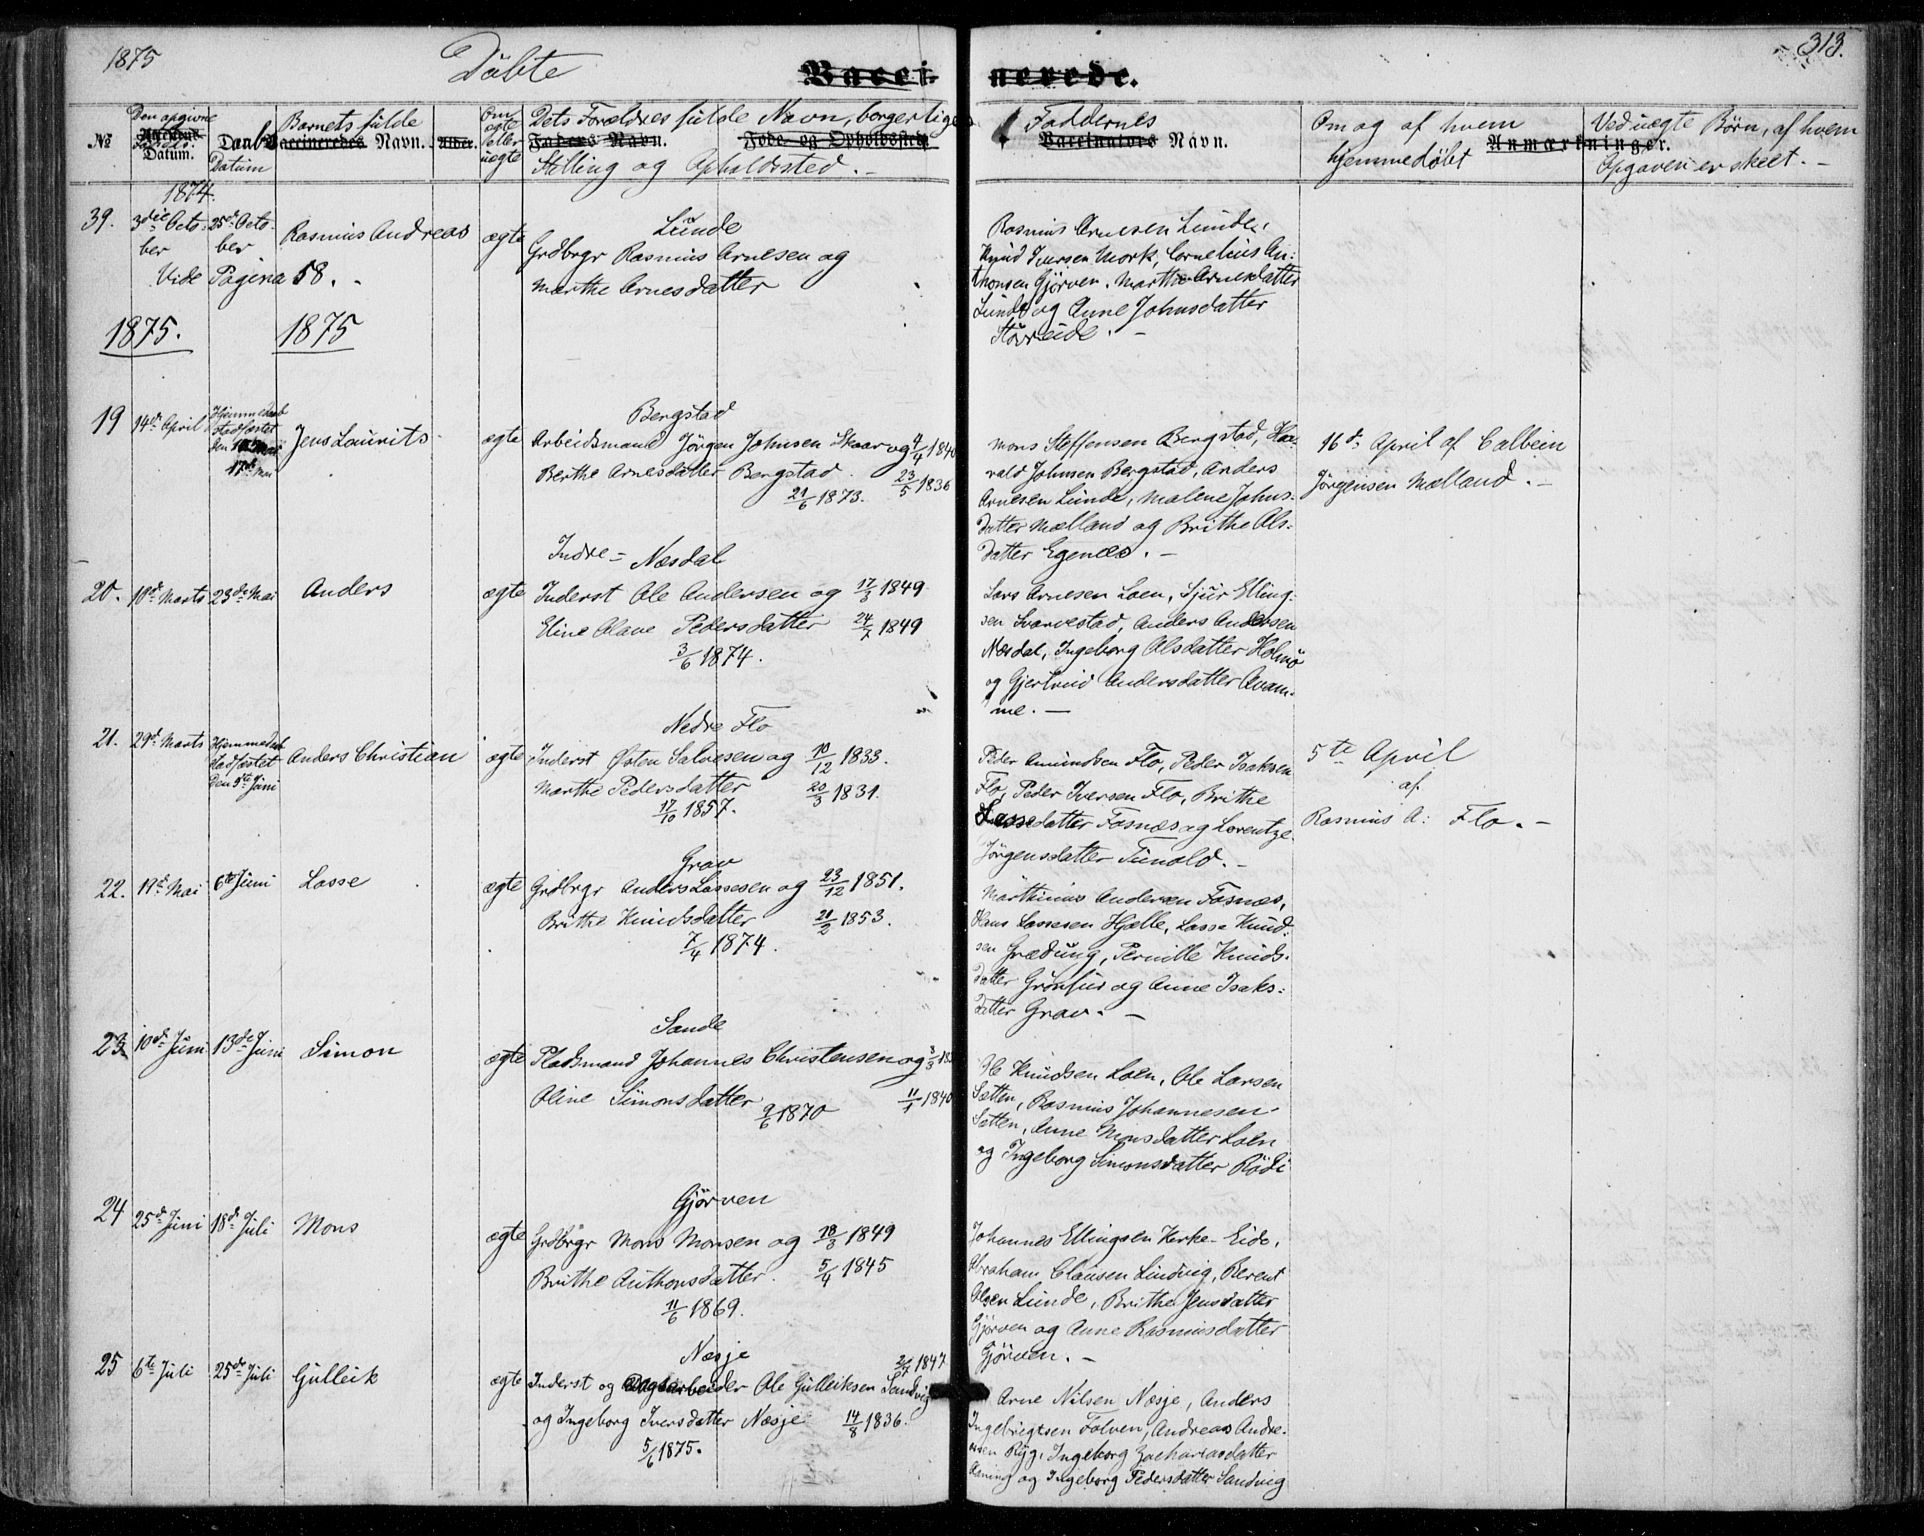 1875
Döbte
Vacci-
nerede.
313.
Den opgivne
Fødsels
Datum.
№
Daabs
Datum
Barnets fulde
Vaccineredes Navn.
Alder.
Om
ægte
eller
uægte
Dets Forældres fulde Navn, borgerlige
Faders Navn. Føde- og Opholdssted.
Stilling og Opholdssted. -
Faddernes
Vaccinators Navn.
Om og af hvem
hjemmedøbt
Anmærkninger.
Ved uægte Børn, af hvem
Opgaven er skeet. -
1874.
39. 3die Octo- 25de Octo- Rasmus Andreas ægte Lunde
ber ber Grdbrgr Rasmus Arnesen og
Vide Pagina 58. - Marthe Arnesdatter
Rasmus Arnesen Lunde,
Knud Iversen Mork, Cornelius An-
thonsen Gjörven, Marthe Arnesdatter
Lunde og Anne Johnsdatter
Störreide. -
1875. 1875
Bergstad
19 14de April Hjemmedaab
stadfæstet
den
17de Mai
Jens Laurits ægte Arbeidsmand Jörgen Johnsen Skaar og 4/4 1840
Berthe Arnesdatter Bergstad. 23/5 1836
21/6 1873.
Mons Steffensen Bergstad, Har-
vald Johnsen Bergstad, Anders
Arnesen Lunde, Malene Johns-
datter Mælland og Brithe Ols-
datter Egenæs. -
16de April af Calbein
Jörgensen Mælland. -
Indre - Næsdal
20. 10de Marts 23de Mai Anders ægte Inderst Ole Andersen og 17/3 1849
Eline Olave Pedersdatter 24/7 1849
3/6 1874.
Lars Arnesen Loen, Sjur Elling-
sen Svarvestad, Anders Andersen
Næsdal, Ingeborg Olsdatter Holmö
og Gjertrud Andersdatter Qvam-
me. -
Nedre Flo
21. 29de Marts Hjemmedaab
stadfæstet
den 5te Juni
Anders Christian ægte Inderst Østen Salvesen og 10/12 1833.
Marthe Pedersdatter 20/3 1831.
17/10 1857.
Peder Amundsen Flo, Peder Isaksen
Flo, Peder Iversen Flo, Brithe
Lassedatter Fosnæs og Lorentze
Jörgensdatter Tunold. -
5te April
af
Rasmus A: Flo. -
Grav
22. 17de Mai 6te Juni Lasse ægte Grdbrgr Anders Lassesen og 23/12 1851.
Brithe Knudsdatter 20/2 1853.
7/4 1874.
Marthinus Andersen Fosnæs,
Hans Lassesen Hjelle, Lasse Knud-
sen Grædung, Pernille Knuds-
datter Grönfur og Anne Isaks-
datter Grav. -
Sande
23 10de Juni 13de Juni Simon ægte Pladsmand Johannes Christensen og 8/3 18
Oline Simonsdatter 11/1 1840
9/6 1870
Ole Knudsen Loen, Ole Larsen
Sætten, Rasmus Johannesen
Sætten, Anne Monsdatter Loen
og Ingeborg Simonsdatter Rödi
Gjörven
24 25de Juni 18de Juli Mons ægte Grdbrgr Mons Monsen og 18/3 1849
Brithe Anthonsdatter. 5/4 1845
11/6 1869.
Johannes Ellingsen Kirke-Eide,
Abraham Clausen Lindvig, Berent
Olsen Lunde, Brithe Jensdatter
Gjörven og Anne Rasmusdatter
Gjörven. -
Næsje
25 6te Juli 25de Juli Gulleik ægte Inderst og Dagarbeider Ole Gulleiksen Sandvig 1847
og Ingeborg Iversdatter Næsje 14/8 1836.
5/6 1875.
Arne Nilsen Næsje, Anders
Ingebrigtsen Folven, Andreas Andre-
asen Ryg, Ingeborg Zachariasdatter
og Ingeborg Pedersdatter Sandvig